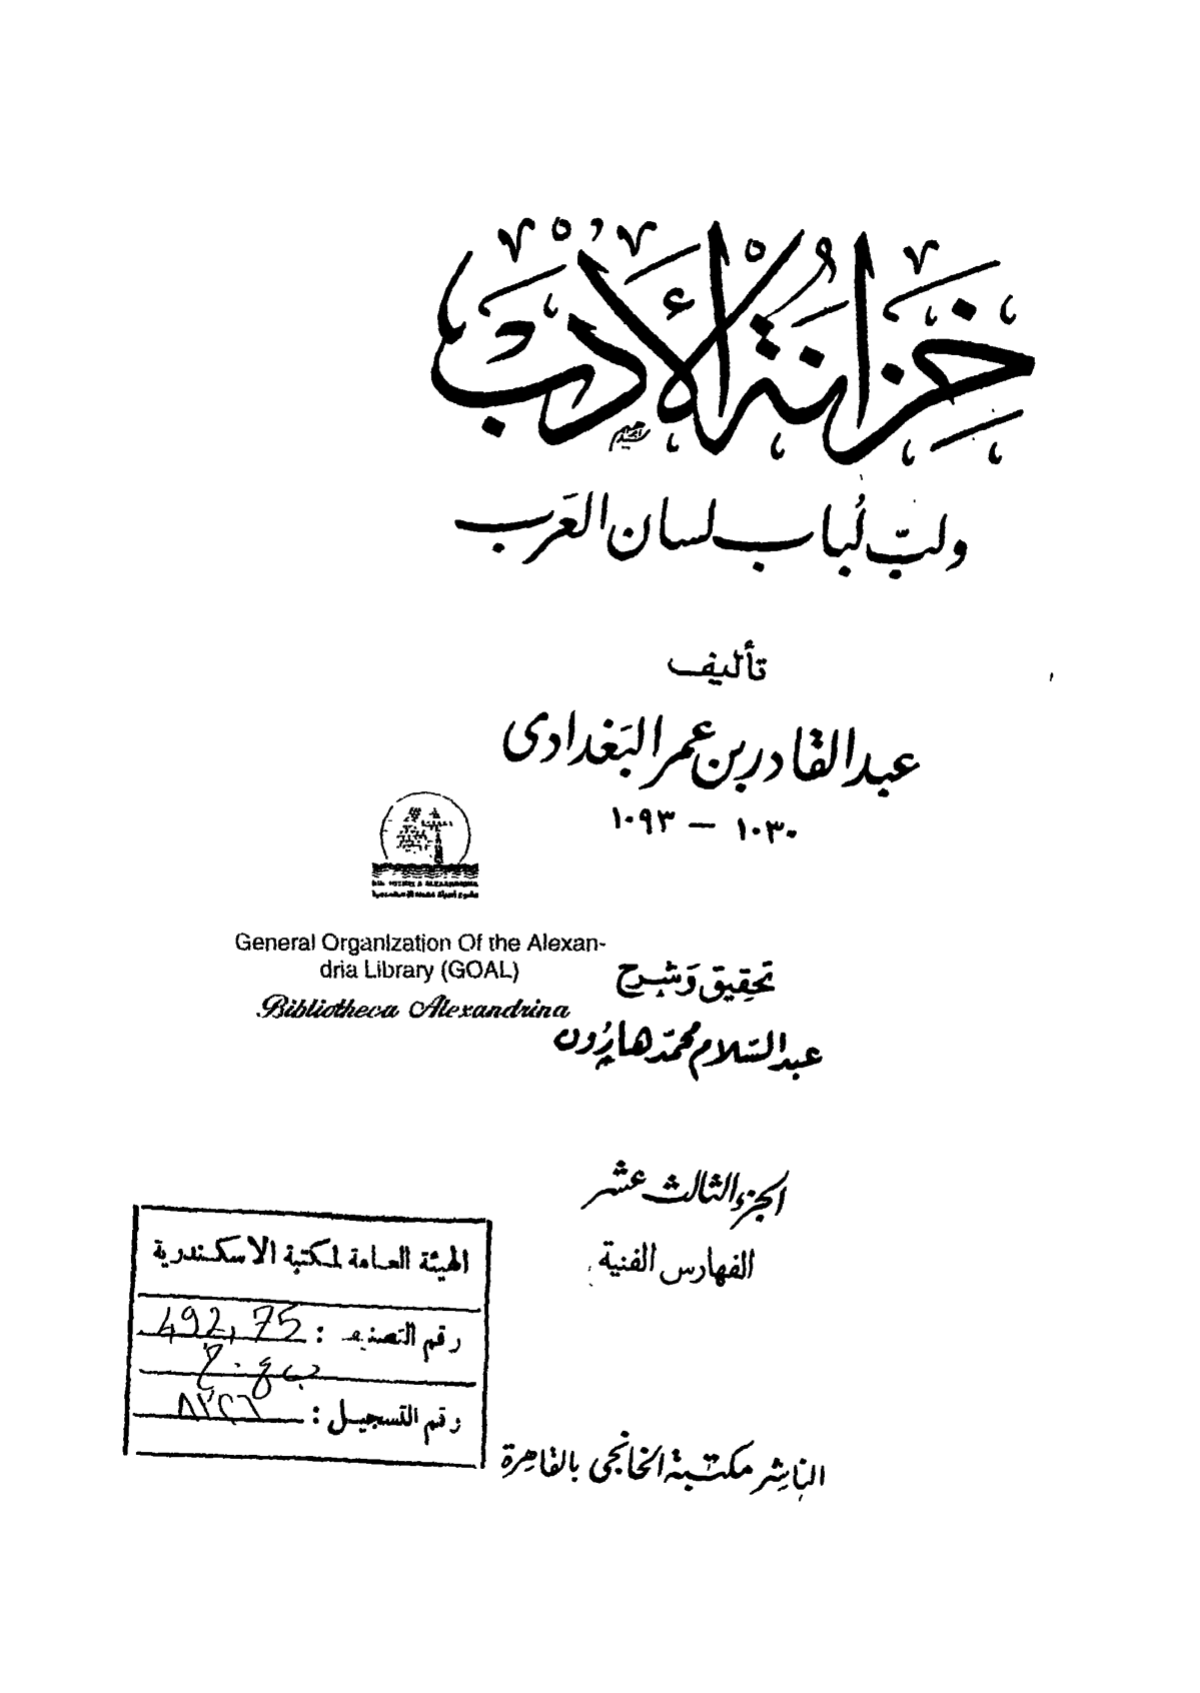 خِزَانَةُ الْأَدَب
ولبّ لُباب لسان العَرب
تأليف
عبد القادر بن عمر البَغدادى
١٠٣٠ — ١٠٩٣
General Organization Of the Alexan-
dria Library (GOAL)
Bibliotheca Alexandrina
تحقيق وَشرح
عبد السّلام محمّد هارُون
الجزء الثالث عشر
الفهارس الفنية
الهيئة العامة لمكتبة الاسكندرية
رقم التصنيف : 492,75
رقم التسجيل : ٨٣٢٦
الناشر مكتبة الخانجى بالقاهرة